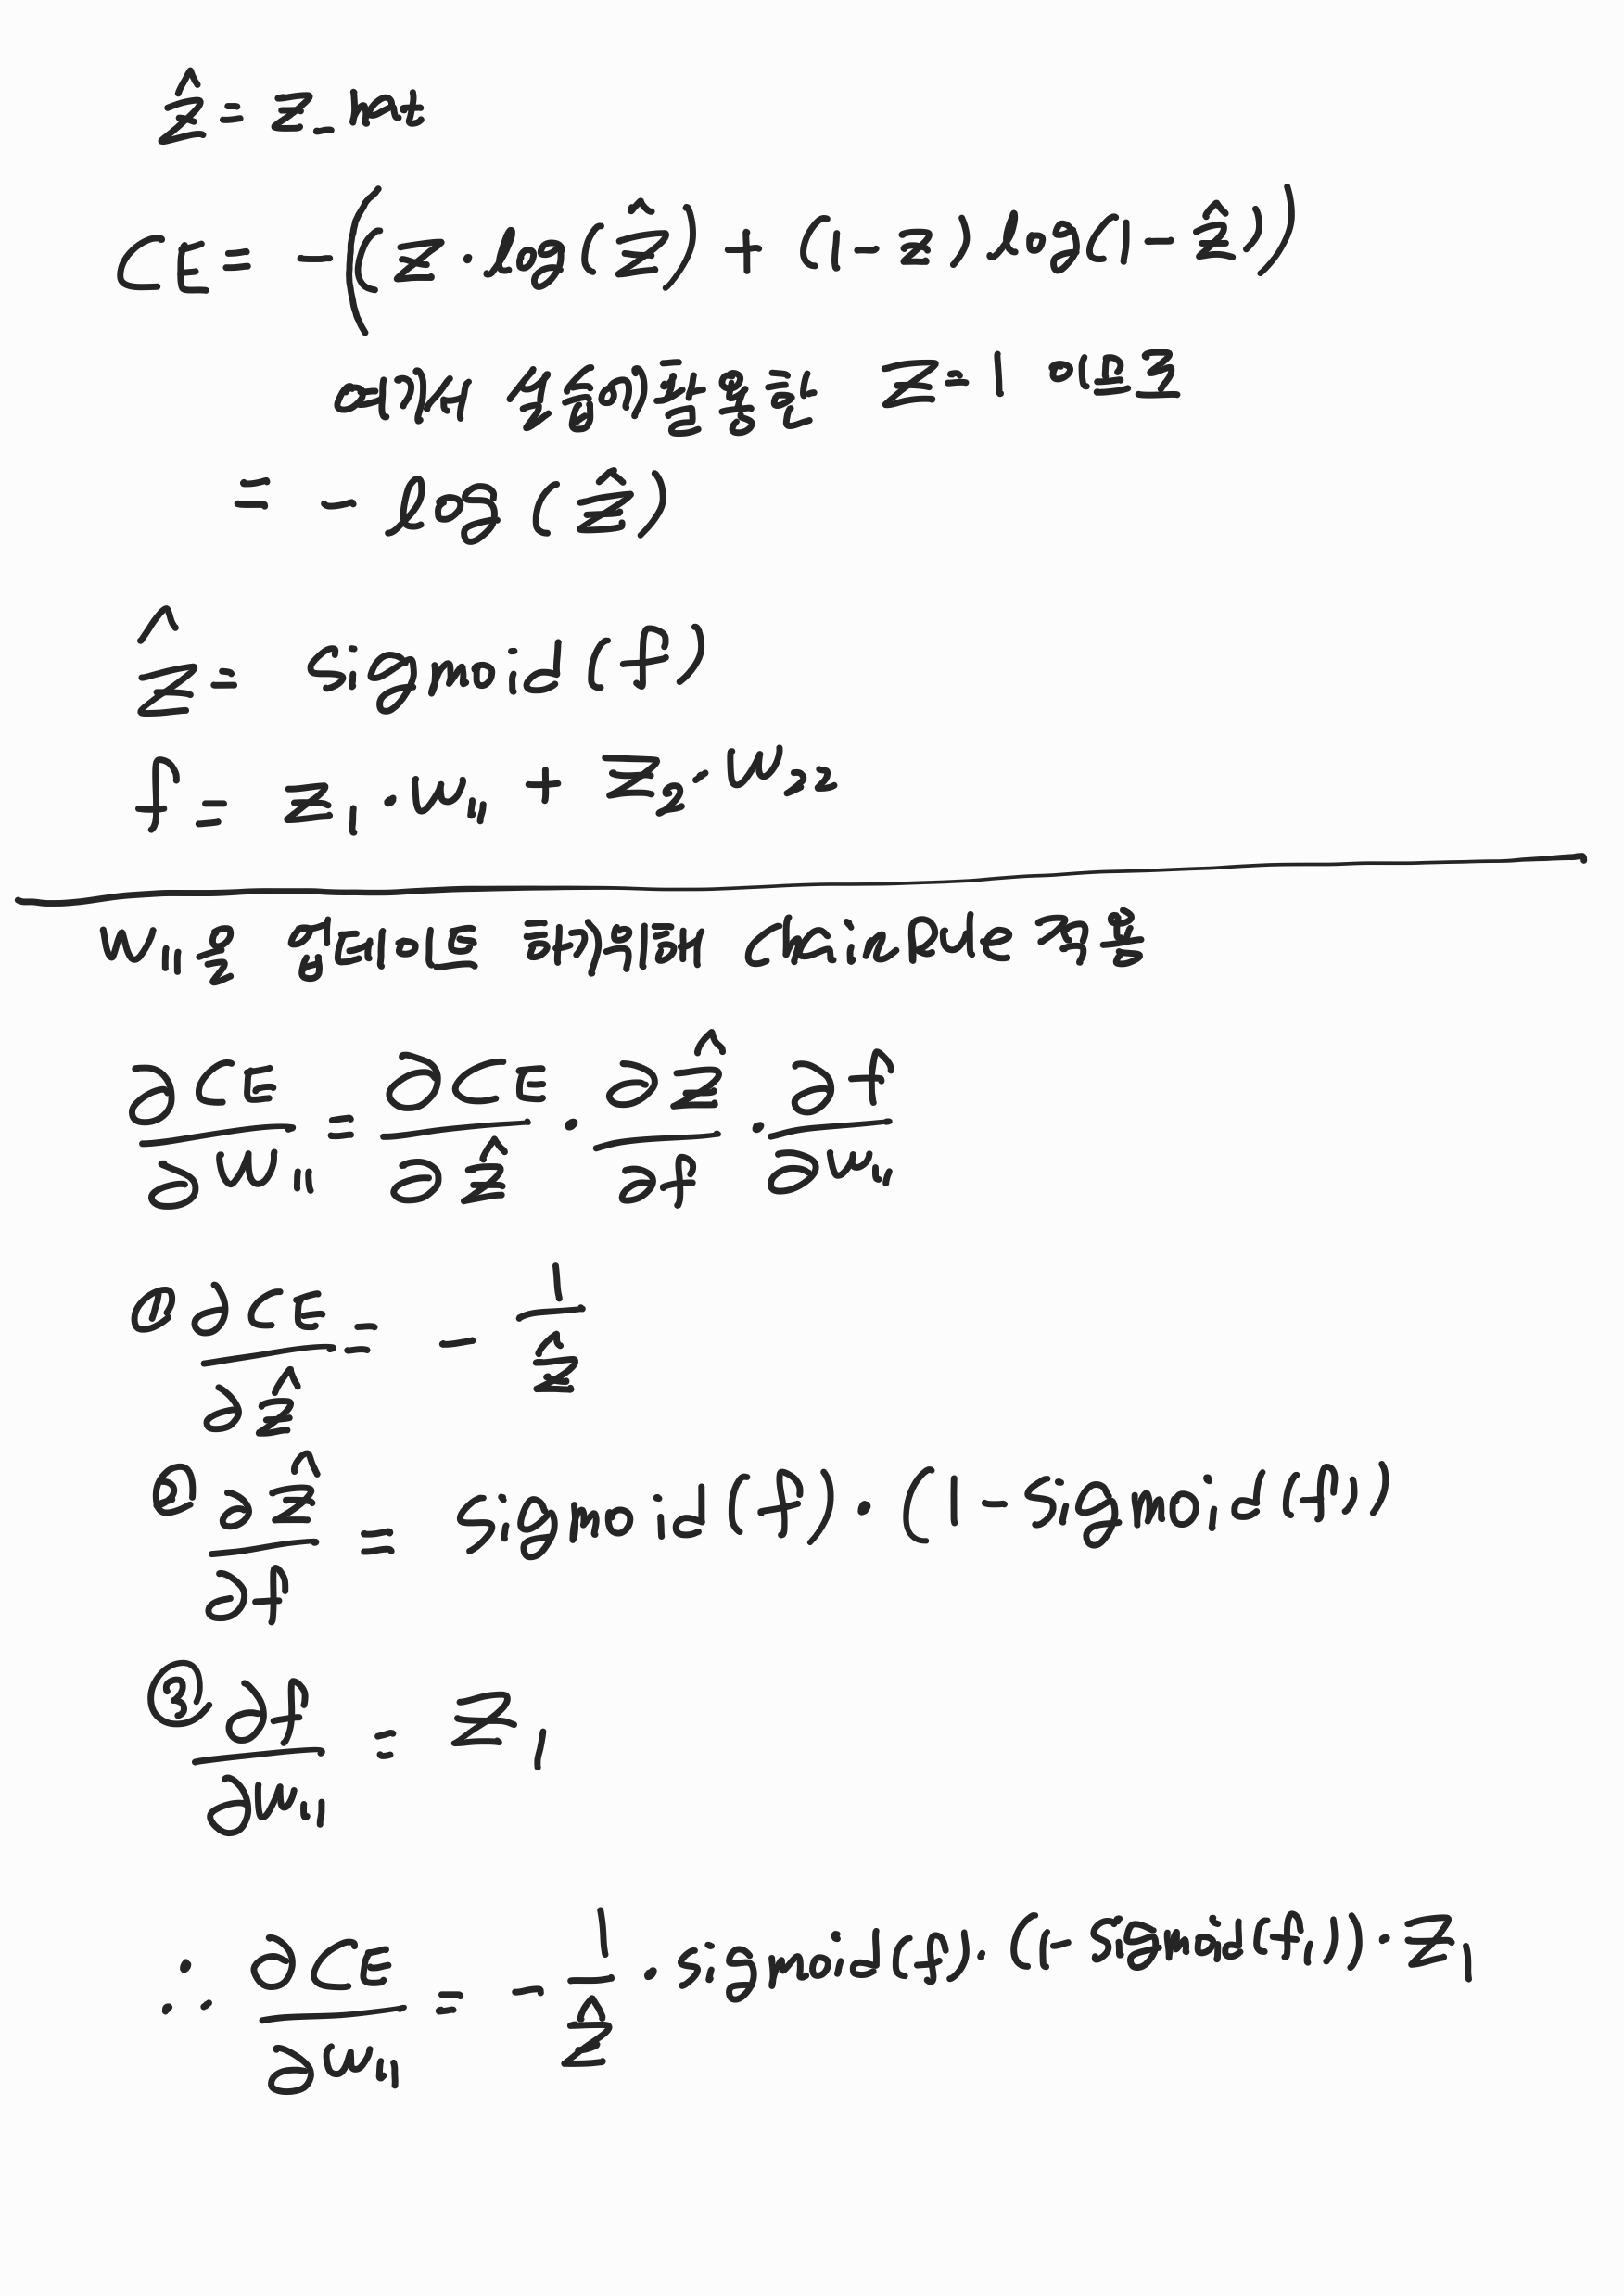 ẑ = z_hat
CE = -((z · log(ẑ) + (1 - z) log(1 - ẑ))
여기서 z = 1 이므로
= - log(ẑ)
ẑ = sigmoid(f)
f = z₁ · w₁₁ + z₂ · w₂₂
w₁₁을 업데이트 하기위해 ChainRule 적용
∂CE/∂w₁₁ = ∂CE/∂ẑ · ∂ẑ/∂f · ∂f/∂w₁₁
① ∂CE/∂ẑ = - 1/ẑ
② ∂ẑ/∂f = sigmoid(f) · (1 - sigmoid(f))
③ ∂f/∂w₁₁ = z₁
∴ ∂CE/∂w₁₁ = - 1/ẑ · sigmoid(f) · (1 - sigmoid(f)) · z₁